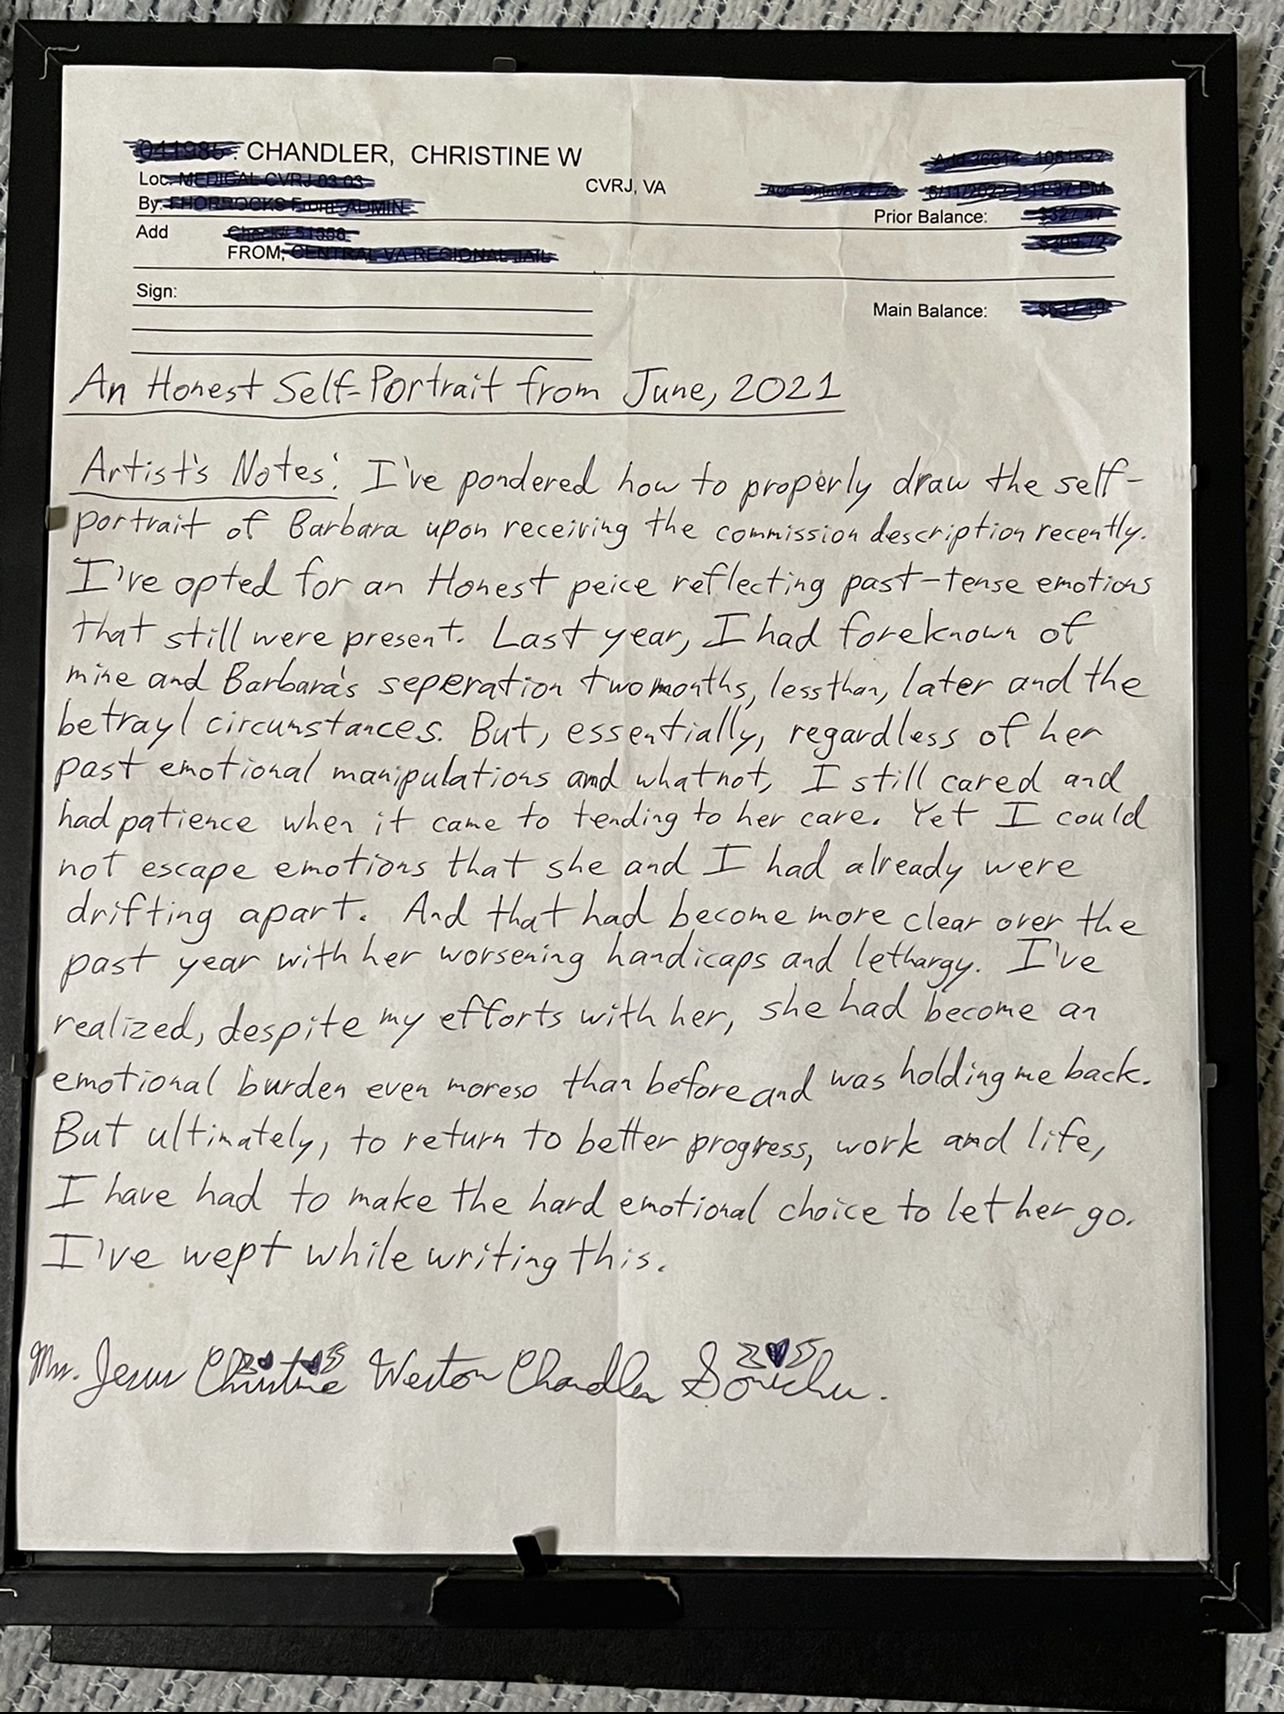 : CHANDLER, CHRISTINE W
Loc:
CVRJ, VA
By:
Prior Balance:
Add
FROM:
Sign:
Main Balance:
An Honest Self-Portrait from June, 2021
Artist's Notes: I've pondered how to properly draw the self-
portrait of Barbara upon receiving the commission description recently.
I've opted for an Honest peice reflecting past-tense emotions
that still were present. Last year, I had foreknown of
mine and Barbara's seperation two months, less than, later and the
betrayl circumstances. But, essentially, regardless of her
past emotional manipulations and whatnot, I still cared and
had patience when it came to tending to her care. Yet I could
not escape emotions that she and I had already were
drifting apart. And that had become more clear over the
past year with her worsening handicaps and lethargy. I've
realized, despite my efforts with her, she had become an
emotional burden even moreso than before and was holding me back.
But ultimately, to return to better progress, work and life,
I have had to make the hard emotional choice to let her go.
I've wept while writing this.
Christine Weston Chandler Sonichu.